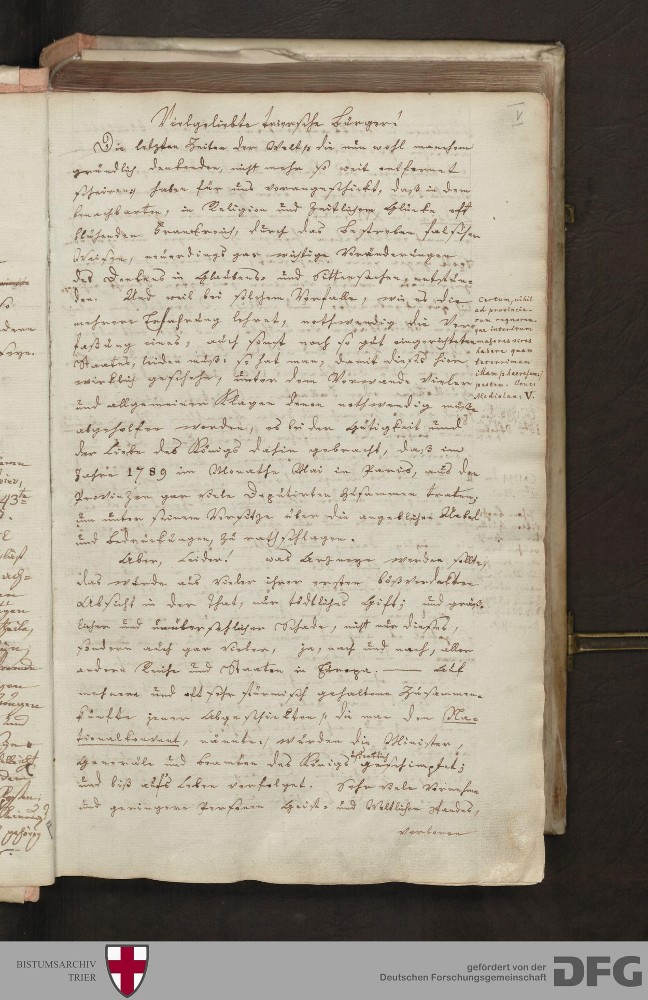 V
Vielgeliebte trierische Bürger!
Die letzten Zeiten der Welt, die nun wohl manchem
gründlich denkenden, nicht mehr so weit entfernet
scheinen, haben für uns vorangeschickt, daß in dem
benachbarten, in Religion und Zeitlichem Glücke oft
blühenden Frankreich, durch das Bestreben falscher
Weisen, neuerdings gar wichtige Veränderungen
des Denkens in Glaubens- und Sittensachen, entstun-
den. Und weil bei solchem Vorfalle, wie es die
mehrere Erfahrung lehret, nothwendig die Ver-
faßung eines, auch sonst noch so gut eingerichteten
Staates, leiden muß: so hat man, damit dieses hier
wirklich geschehe, unter dem Vorwande vieler
und allgemeinen Klagen denen nothwendig müßte
abgeholfen werden, es bei der Gütigkeit und
der Liebe des Königs dahin gebracht, daß im
Jahre 1789 im Monathe Mai in Paris, aus den
Provinzen gar viele Deputirten zusammen traten,
um unter seinem Vorsitze über die angeblichen Uebel
und Bedrückungen, zu rathschlagen.
Aber, leider! was Arzney werden sollte,
das wurde aus vieler ihrer ersten bößverdekten
Absicht in der That, nur tödtliches Gift; und gräß-
licher und unübersehlicher Schade, nicht nur dieses,
sondern auch gar vieler, ja, nach und nach, aller
andern Reiche und Staaten in Europa. — Als
mehrere und oft sehr stürmisch gehaltene Zusammen-
künfte jener Abgeschickten, die man den Na-
tionalkonvent, nannte, wurden die Minister,
Generäle und Beamten des Königs geschimpfet;
und biß aufs Leben verfolget. Sehr viele Vornehme
und geringere Personen Geist- und Weltlichen Standes,
verloren
Certum, nihil
ad provincia-
rum regnorum-
que interitum
majores vires
habere quam
teterrimam
illam haeresium
pestem. Conc:
Mediolan: V.
43te
BISTUMSARCHIV
TRIER
gefördert von der
Deutschen Forschungsgemeinschaft
DFG